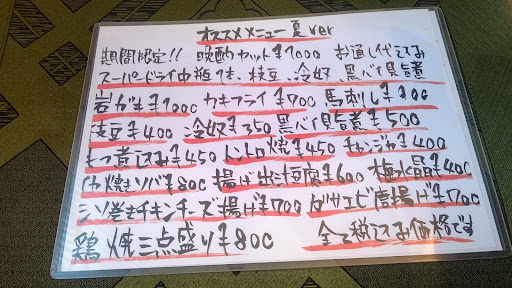 オススメメニュー 夏ver
期間限定!! 晩酌セット¥1000 お通し代込み
スーパードライ中瓶1本、枝豆、冷奴、黒バイ貝旨煮
岩ガキ¥1000 カキフライ¥700 馬刺し¥800
枝豆¥400 冷奴¥350 黒バイ貝旨煮¥500
もつ煮込み¥450 トントロ焼¥450 チャンジャ¥400
焼きソバ¥800 揚げ出汁豆腐¥600 梅水晶¥400
シソ巻きチキンチーズ揚げ¥700 ガサエビ唐揚げ¥700
鶏焼三点盛り¥800 全て税込み価格です